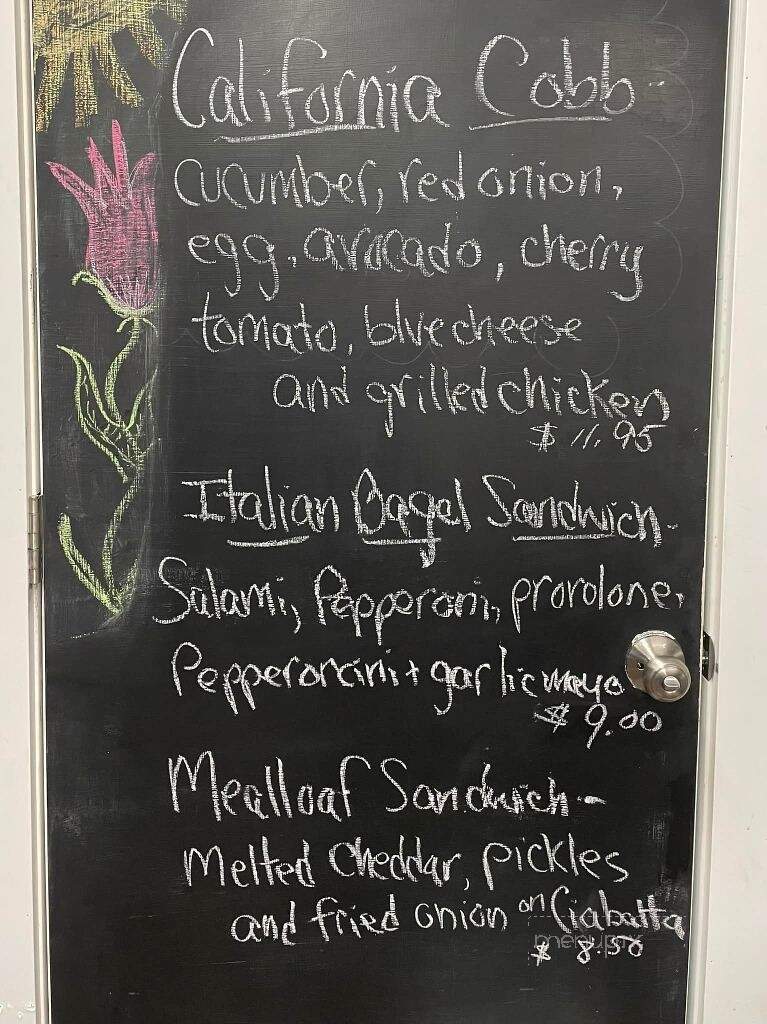 California Cobb-
cucumber, red onion,
egg, avocado, cherry
tomato, blue cheese
and grilled chicken
$ 11.95
Italian Bagel Sandwich-
Salami, Pepperoni, provolone,
Pepperoncini + garlic mayo
$ 9.00
Meatloaf Sandwich-
Melted Cheddar, pickles
and fried onion on Ciabatta
$ 8.50